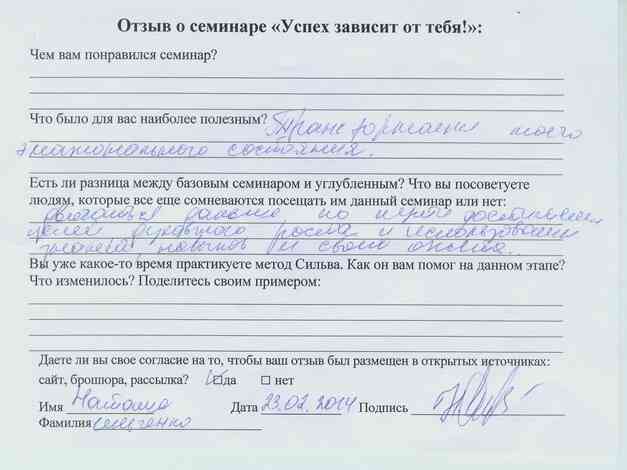 Отзыв о семинаре «Успех зависит от тебя!»:
Чем вам понравился семинар?
Что было для вас наиболее полезным? Трансформация моего
эмоционального состояния.
Есть ли разница между базовым семинаром и углубленным? Что вы посоветуете
людям, которые все еще сомневаются посещать им данный семинар или нет:
двигаться дальше по пути достижения
целей духовного роста и использования
знаний, навыков и своего опыта.
Вы уже какое-то время практикуете метод Сильва. Как он вам помог на данном этапе?
Что изменилось? Поделитесь своим примером:
Даете ли вы свое согласие на то, чтобы ваш отзыв был размещен в открытых источниках:
сайт, брошюра, рассылка? да нет
Имя Наташа Дата 23.02.2014 Подпись
Фамилия